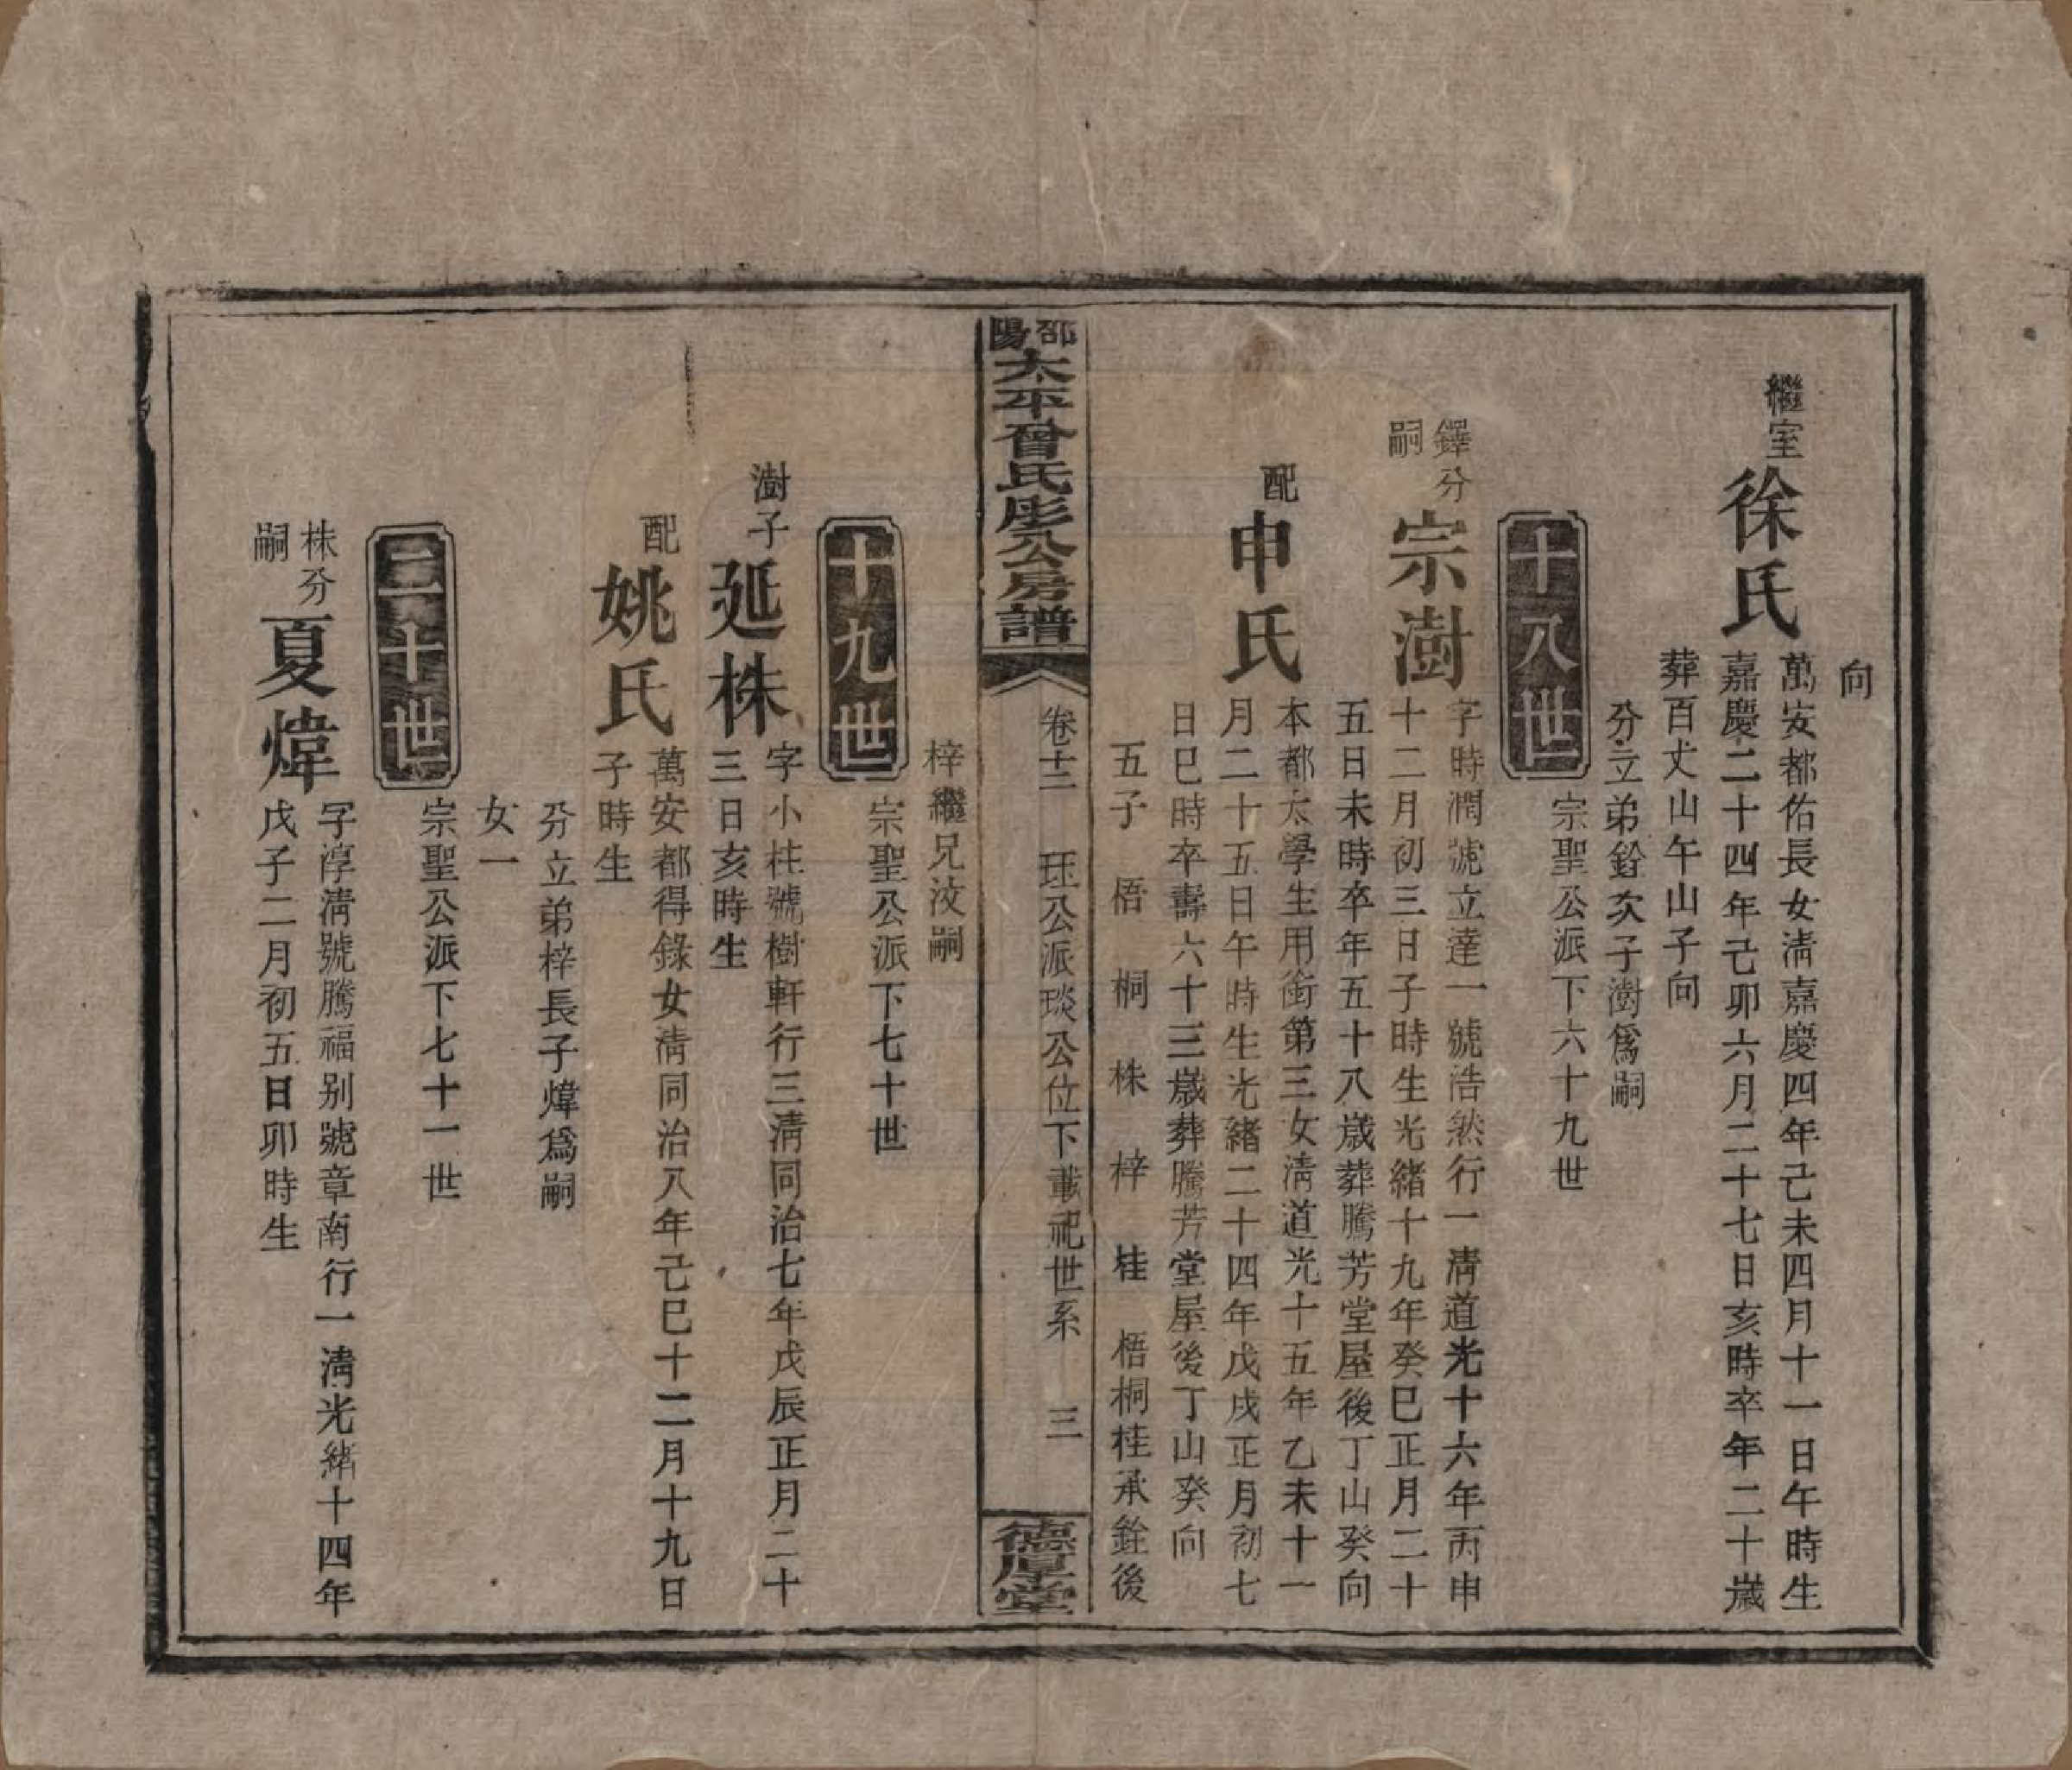 向
繼室
徐氏
萬安都佑長女淸嘉慶四年己未四月十一日午時生
嘉慶二十四年己卯六月二十七日亥時卒年二十歲
葬百丈山午山子向
分立弟銓次子澍爲嗣
十八世
宗聖公派下六十九世
鐸分
嗣
宗澍
字時潤號立達一號浩然行一淸道光十六年丙申
十二月初三日子時生光緒十九年癸巳正月二十
五日未時卒年五十八歲葬騰芳堂屋後丁山癸向
配
申氏
本都太學生用銜第三女淸道光十五年乙未十一
月二十五日午時生光緒二十四年戊戌正月初七
日巳時卒壽六十三歲葬騰芳堂屋後丁山癸向
五子 梧 桐 株 梓 桂 梧桐桂承銓後
邵陽
太平曾氏彪公房譜
卷十二 珏公派琰公位下載祀世系 三
德厚堂
梓繼兄汶嗣
十九世
宗聖公派下七十世
澍子
延株
字小柱號樹軒行三淸同治七年戊辰正月二十
三日亥時生
配
姚氏
萬安都得錄女淸同治八年己巳十二月十九日
子時生
分立弟梓長子煒爲嗣
女一
二十世
宗聖公派下七十一世
株分
嗣
夏煒
字淳淸號騰福別號章南行一淸光緒十四年
戊子二月初五日卯時生